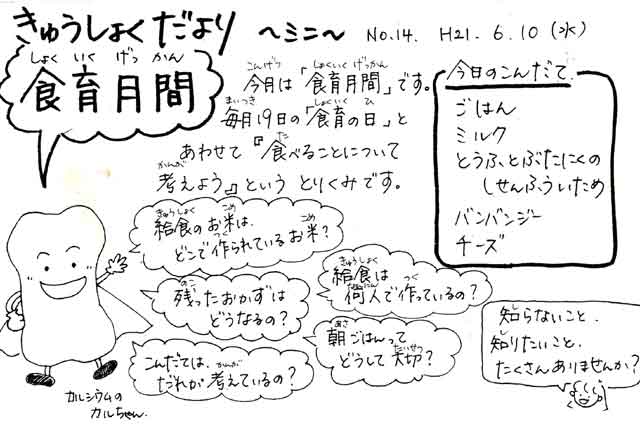 きゅうしょくだより 〜ミニ〜 No.14. H21. 6.10 (水)
しょく いく げっ かん
食育月間
こんげつ しょくいくげっかん
今月は「食育月間」です。
まいつき しょくいく ひ
毎月19日の「食育の日」と
た
あわせて『食べることについて
かんが
考えよう』という とりくみです。
今日のこんだて
ごはん
ミルク
とうふとぶたにくの
しせんふういため
バンバンジー
チーズ
きゅうしょく こめ
給食のお米は、
つく こめ
どこで作られているお米?
のこ
残ったおかずは
どうなるの?
かんが
こんだては、
だれが考えているの?
きゅうしょく
給食は
なんにん つく
何人で作っているの?
あさ
朝ごはんって
たいせつ
どうして大切?
し
知らないこと、
し
知りたいこと、
たくさんありませんか?
カルシウムの
カルちゃん